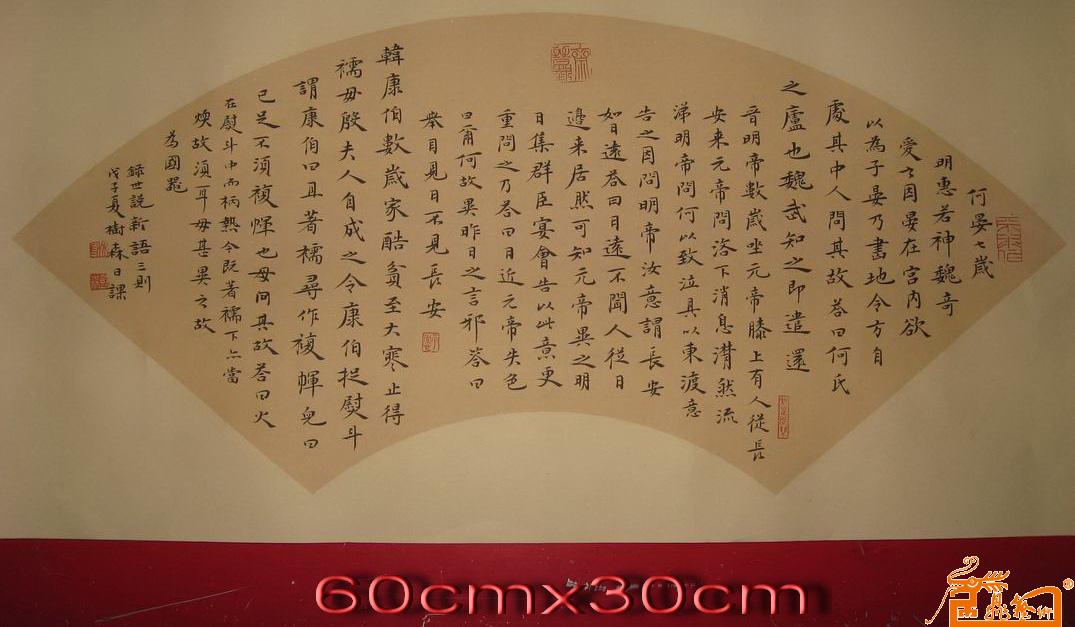 何晏七歲
明惠若神魏奇
愛之因晏在宮内欲
以為子晏乃畫地令方自
處其中人問其故荅曰何氏
之廬也魏武知之即遣還
晉明帝數歲坐元帝膝上有人從長
安来元帝問洛下消息潸然流
涕明帝問何以致泣具以東渡意
告之因問明帝汝意謂長安
如日遠荅曰日遠不聞人從日
邉来居然可知元帝異之明
日集群臣宴會告以此意更
重問之乃荅曰日近元帝失色
曰爾何故異昨日之言邪荅曰
舉目見日不見長安
韓康伯數歲家酷貧至大寒止得
襦毋殷夫人自成之令康伯捉熨斗
謂康伯曰且著襦尋作複㡓兒曰
已足不須複㡓也母问其故荅曰火
在熨斗中而柄熱今既著襦下亦當
煖故須耳毋甚異之故
為國器
録世説新語三則
戊子夏樹森日課
60cmx30cm